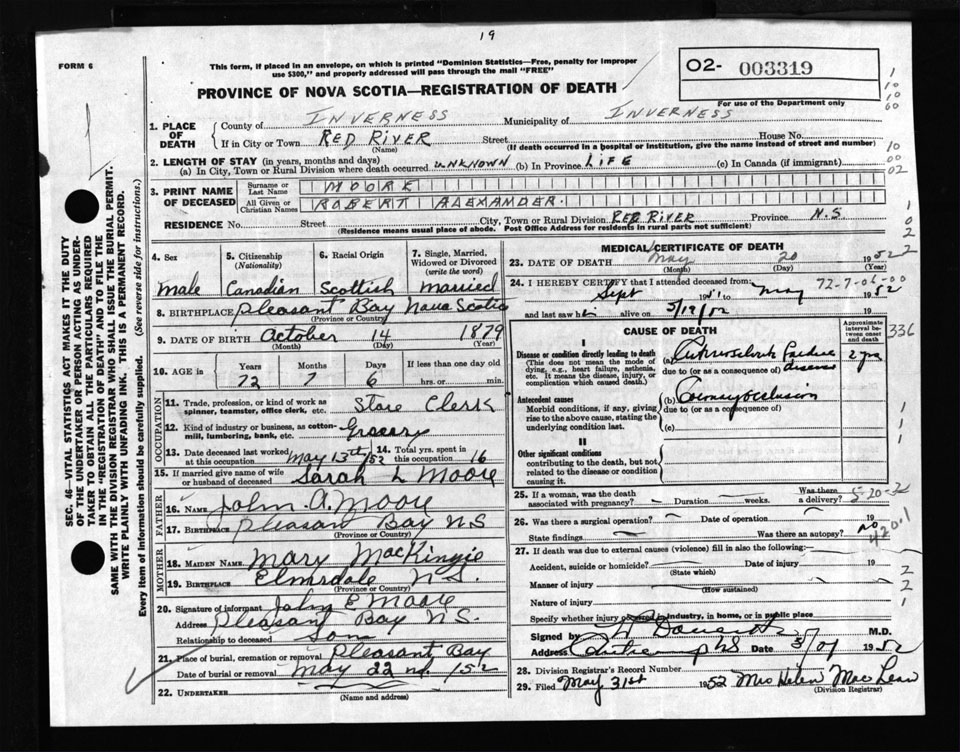 19
FORM 6
This form, if placed in an envelope, on which is printed "Dominion Statistics—Free, penalty for improper
use $300," and properly addressed will pass through the mail "FREE"
02- 003319
For use of the Department only
PROVINCE OF NOVA SCOTIA—REGISTRATION OF DEATH
1. PLACE OF DEATH { County of INVERNESS Municipality of INVERNESS
If in City or Town RED RIVER Street House No.
(Name) (If death occurred in a hospital or institution, give the name instead of street and number)
2. LENGTH OF STAY (in years, months and days)
(a) In City, Town or Rural Division where death occurred UNKNOWN (b) In Province LIFE (c) In Canada (if immigrant)
3. PRINT NAME OF DECEASED { Surname or Last Name MOORE
All Given or Christian Names ROBERT ALEXANDER.
RESIDENCE No. Street City, Town or Rural Division RED RIVER Province N.S
(Residence means usual place of abode. Post Office Address for residents in rural parts not sufficient)
4. Sex 5. Citizenship (Nationality) 6. Racial Origin 7. Single, Married, Widowed or Divorced (write the word)
Male Canadian Scottish Married
8. BIRTHPLACE Pleasant Bay Nova Scotia
(Province or Country)
9. DATE OF BIRTH October 14 1879
(Month) (Day) (Year)
10. AGE in Years Months Days If less than one day old
72 7 6 hrs. or min.
OCCUPATION
11. Trade, profession, or kind of work as spinner, teamster, office clerk, etc. Store Clerk
12. Kind of industry or business, as cotton-mill, lumbering, bank, etc. Grocery
13. Date deceased last worked at this occupation May 13th/52 14. Total yrs. spent in this occupation 16
15. If married give name of wife or husband of deceased Sarah L Moore
FATHER
16. NAME John A. Moore
17. BIRTHPLACE Pleasant Bay NS
(Province or Country)
MOTHER
18. MAIDEN NAME Mary MacKinzie
19. BIRTHPLACE Elmsdale N.S.
(Province or Country)
20. Signature of informant John E Moore
Address Pleasant Bay N.S.
Relationship to deceased Son
21. Place of burial, cremation or removal Pleasant Bay
Date of burial or removal May 22nd /52
22. UNDERTAKER
(Name and address)
MEDICAL CERTIFICATE OF DEATH
23. DATE OF DEATH May 20 1952
(Month) (Day) (Year)
72-7-06-00
24. I HEREBY CERTIFY that I attended deceased from
Sept 1951 to May 1952
and last saw h alive on 5/19/52 19
CAUSE OF DEATH
Approximate interval between onset and death
336
I
Disease or condition directly leading to death
(This does not mean the mode of dying, e.g., heart failure, asthenia, etc. It means the disease, injury, or complication which caused death.)
(a) disease 2 yrs
due to (or as a consequence of)
Antecedent causes
Morbid conditions, if any, giving rise to the above cause, stating the underlying condition last.
(b) Coronary occlusion
due to (or as a consequence of)
(c)
II
Other significant conditions
contributing to the death, but not related to the disease or condition causing it.
25. If a woman, was the death associated with pregnancy? Duration weeks. Was there a delivery?
26. Was there a surgical operation? Date of operation 19
State findings Was there an autopsy? no
420.1
27. If death was due to external causes (violence) fill in also the following:—
Accident, suicide or homicide? Date of injury 19
(State which)
Manner of injury
(How sustained)
Nature of injury
Specify whether injury occurred in industry, in home, or in public place
Signed by M.D.
Address Date 1952
28. Division Registrar's Record Number
29. Filed May 31st 1952 Mrs Helen MacLean
(Division Registrar)
SEC. 46—VITAL STATISTICS ACT MAKES IT THE DUTY
OF THE UNDERTAKER OR PERSON ACTING AS UNDER-
TAKER TO OBTAIN ALL THE PARTICULARS REQUIRED
IN THE "REGISTRATION OF DEATH" AND TO FILE THE
SAME WITH THE DIVISION REGISTRAR WHO SHALL ISSUE THE BURIAL PERMIT.
WRITE PLAINLY WITH UNFADING INK. THIS IS A PERMANENT RECORD.
Every item of information should be carefully supplied. (See reverse side for instructions.)